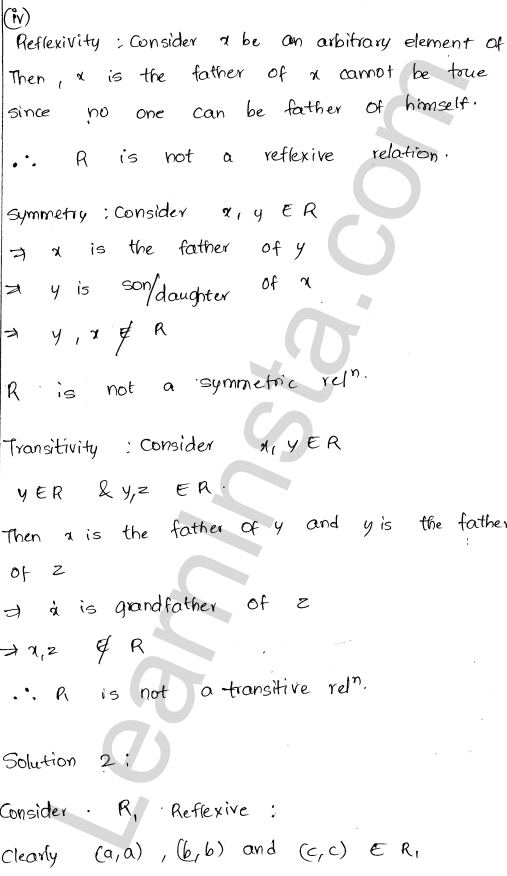 (iv)
Reflexivity : Consider x be an arbitrary element of
Then, x is the father of x cannot be true
since no one can be father of himself.
∴ R is not a reflexive relation.
Symmetry : Consider x, y ∈ R
⇒ x is the father of y
⇒ y is son/daughter of x
⇒ y, x ∉ R
R is not a symmetric relⁿ.
Transitivity : Consider x, y ∈ R
y ∈ R & y, z ∈ R.
Then x is the father of y and y is the father
of z
⇒ x is grandfather of z
⇒ x, z ∉ R
∴ R is not a transitive relⁿ.
Solution 2 :
Consider R₁ Reflexive :
Clearly (a,a), (b,b) and (c,c) ∈ R₁
Learninsta.com